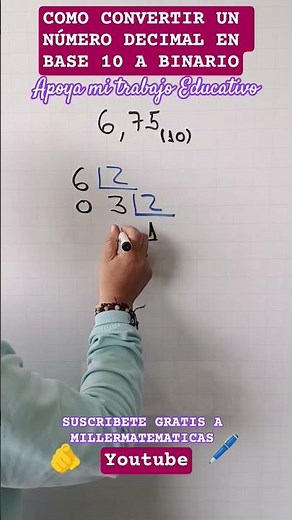 COMO CONVERTIR UN
NÚMERO DECIMAL EN
BASE 10 A BINARIO
Apoya mi trabajo Educativo
6,75(10)
6 2
0 3 2
1
SUSCRIBETE GRATIS A
MILLERMATEMATICAS
Youtube